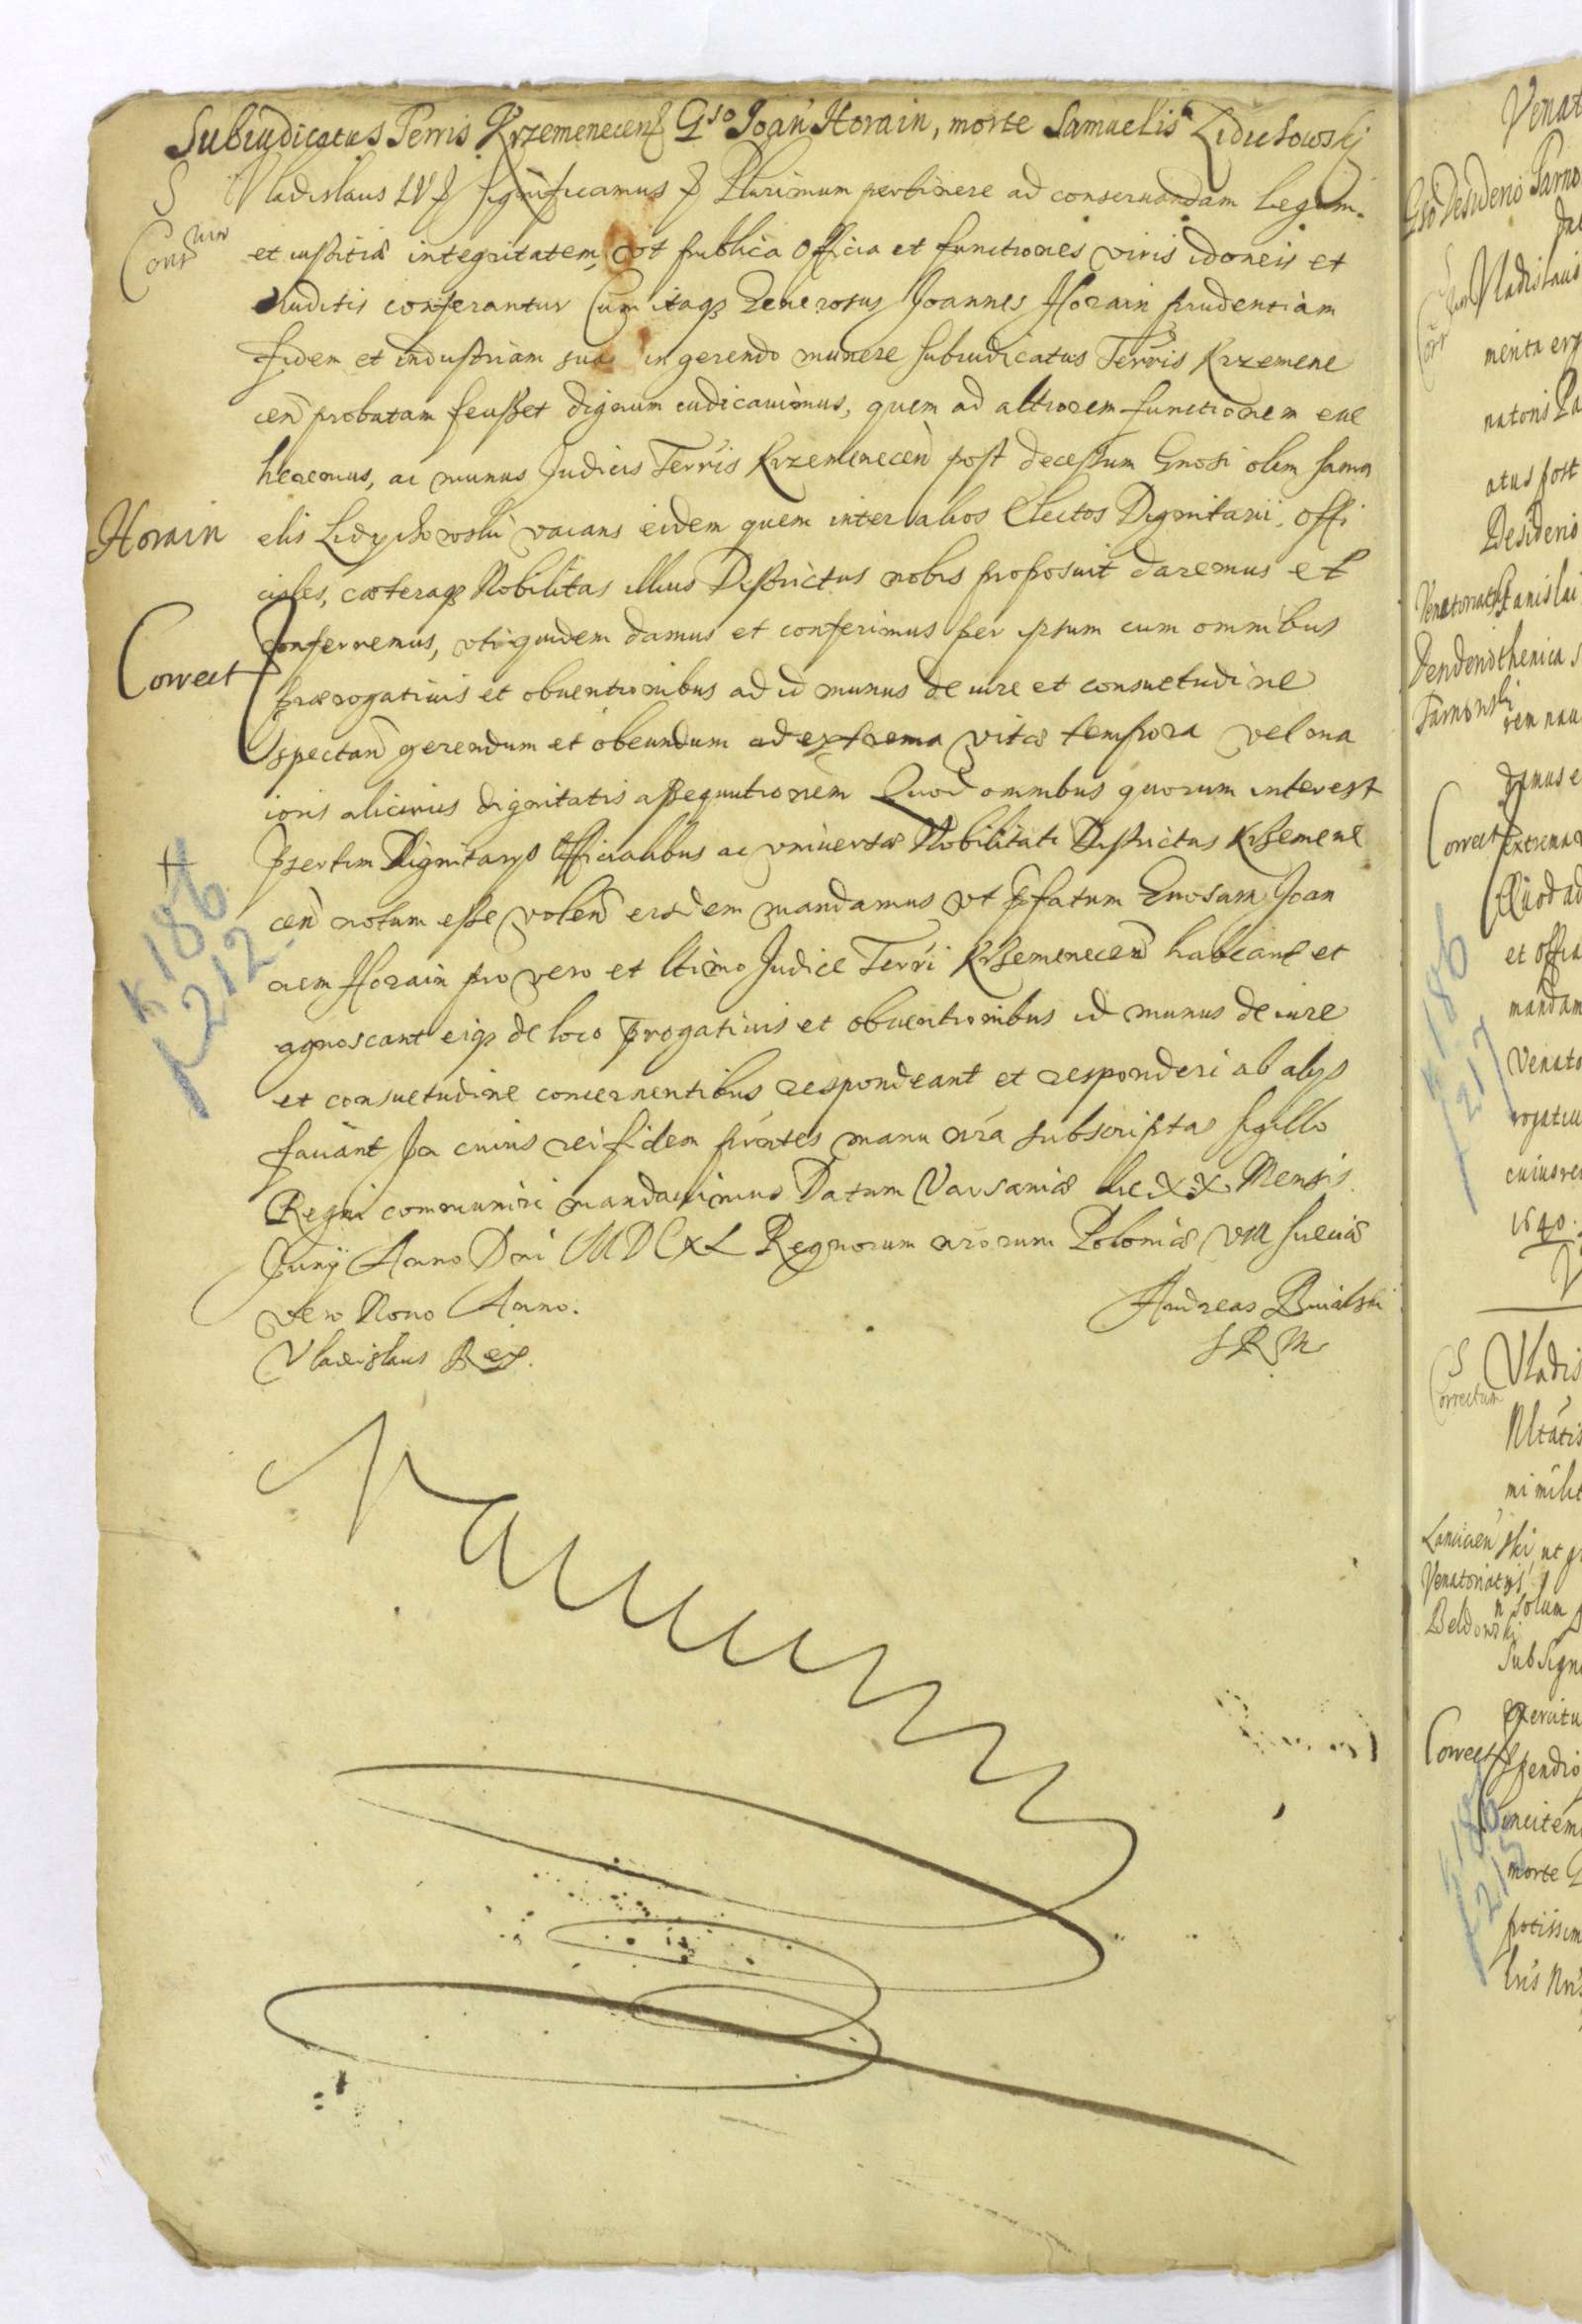 Subiudicatus Terris Krzemenecens Gso Joan Horain, morte Samuelis Liduchowskj
S
Vladislaus IV significamus Plurimum pertinere ad conseruandam Legum
et iustitiæ integritatem, vt publica officia et functiones viris idoneis et
eruditis conferantur Cum itaqz Generosus Joannes Horain prudentiam
fidem et industriam sua in gerendo munere subiudicatus Terris Krzemene
cen probatam fecisset dignum iudicauimus, quem ad altiorem functionem eue
heremus, ac munus Judicis Terris Krzemenecen post decessum Gnosi olim Samu
Horain
elis Lidychowski vacans eidem quem inter alios Electos Dignitarii, Offi
ciales, cæteraqz Nobilitas illius Districtus nobis proposuit daremus et
conferremus, vti quidem damus et conferimus per ipsum cum omnibus
Correct
prærogatiuis et obuentionibus ad id munus de iure et consuetudine
spectan gerendum et obeundum ad extrema vitæ tempora vel ma
ioris alicuius dignitatis assequutionem Quod omnibus quorum interest
psertim Dignitarys Officialibus ac vniuersæ Nobilitati Districtus Krsemene
cen notum esse volen eisdem mandamus vt pfatum Gnosum Joan
K 186
212
nem Horain pro vero et ltimo Judice Terri Krsemenecen habeant et
agnoscant eiqz de loco progatiuis et obuentionibus id munus de iure
et consuetudine concernentibus respondeant et responderi ab alys
faciant In cuius rei fidem pntes manu nra subscriptas sigillo
Regni communiri mandauimus Datum Varsauiæ die XX Mensis
Junij Anno Dni MDCXL Regnorum nrorum Poloniæ VIII Sueciæ
vero Nono Anno.
Vladislaus Rex.
Andreas
S R M
Venat
Gso Desiderio Tarno
Vladislaus
menta erg
natoris
atus post
Desiderio
Venatoriatus
Stanislai
Tarnowski
rem nau
damus e
Correct
extrema
Quod ad
et offi
mandam
K 186
217
Venato
rogatiu
cuius rei
1640.
S
Vladis
Correctum
mi milit
ski, ut
Venatoriatus
n solum
sub signi
exercitu
Correct
stipendio
K 186
morte G
potissim